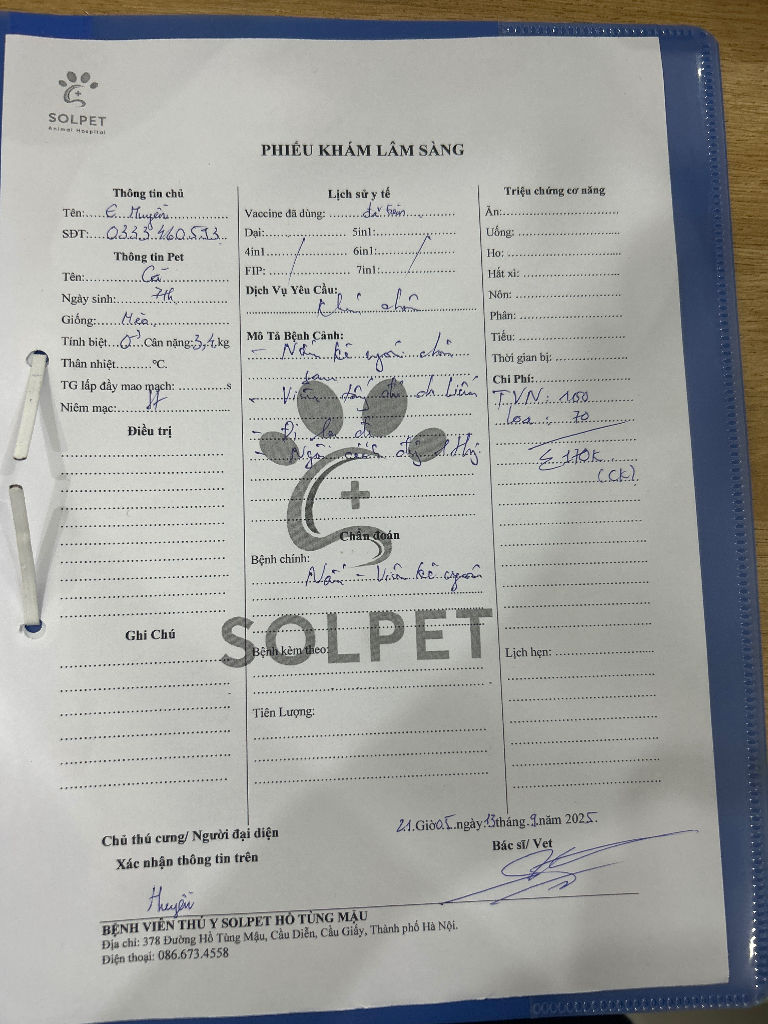 SOLPET
Animal Hospital
PHIẾU KHÁM LÂM SÀNG
Thông tin chủ
Tên: E. Huyền
SĐT: 0333.460.513
Thông tin Pet
Tên:
Ngày sinh: 7th
Giống: Mèo
Tính biệt ♂ Cân nặng: 3,4 kg
Thân nhiệt.........°C.
TG lấp đầy mao mạch: ...............s
Niêm mạc:
Điều trị
Ghi Chú
Lịch sử y tế
Vaccine đã dùng: đã tiêm
Dại: 5in1:
4in1 6in1:
FIP: 7in1:
Dịch Vụ Yêu Cầu:
Khám chân
Mô Tả Bệnh Cảnh:
- Nấm kẽ ngón chân
- Viêm
- Đi
- Ngón
Chẩn đoán
Bệnh chính:
Nấm - Viêm kẽ ngón
SOLPET
Bệnh kèm theo:
Tiên Lượng:
Triệu chứng cơ năng
Ăn:
Uống:
Ho:
Hắt xì:
Nôn:
Phân:
Tiểu:
Thời gian bị:
Chi Phí:
TVN: 100
loa: 70
Σ 170K
(CK)
Lịch hẹn:
21.Giờ05.ngày13tháng.9.năm 2025.
Chủ thú cưng/ Người đại diện
Xác nhận thông tin trên
Bác sĩ/ Vet
Huyền
BỆNH VIỆN THÚ Y SOLPET HỒ TÙNG MẬU
Địa chỉ: 378 Đường Hồ Tùng Mậu, Cầu Diễn, Cầu Giấy, Thành phố Hà Nội.
Điện thoại: 086.673.4558